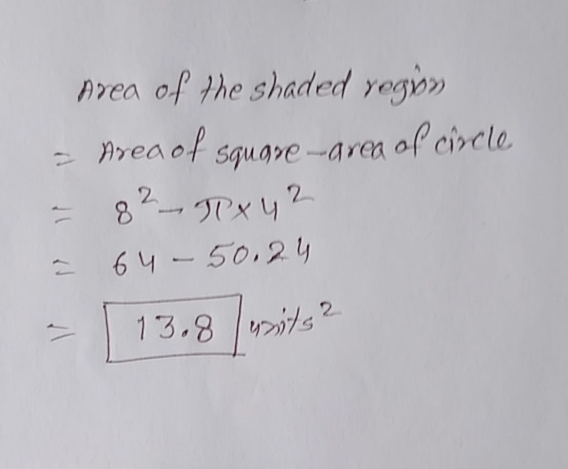 Area of the shaded region
= Area of square - area of circle
= 8² - π × 4²
= 64 - 50.24
= 13.8 units²